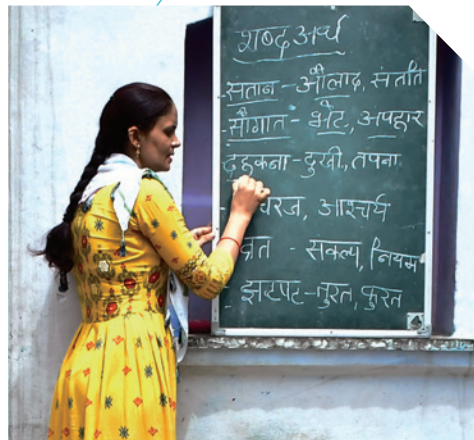 शब्द अर्थ
सतान - औलाद, संतति
सौगात - भेंट, अपहार
दहकना - दुखी, तपना
चरज, आश्चर्य
व्रत - संकल्प, नियम
झटपट - तुरत, फुरत